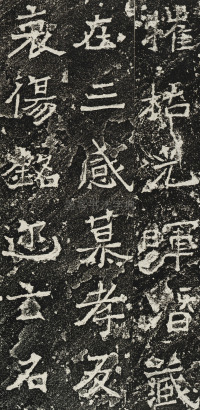 摧枯光暉潛藏
在三感慕孝友
哀傷銘迹玄石